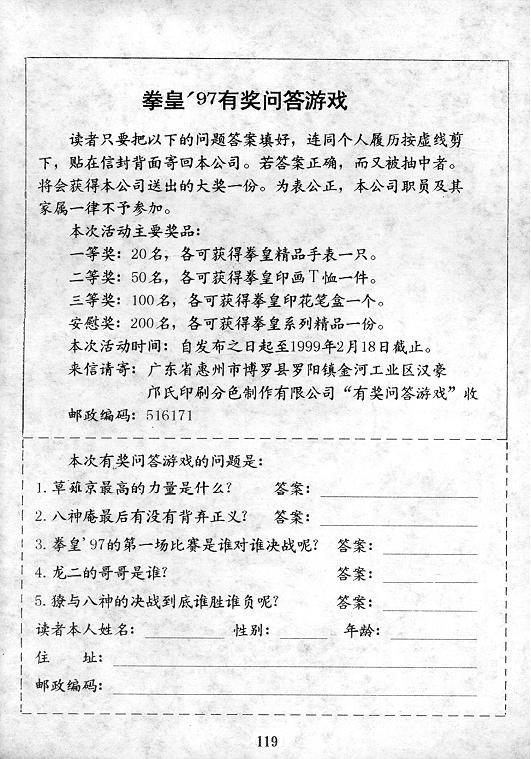 拳皇'97有奖问答游戏
读者只要把以下的问题答案填好，连同个人履历按虚线剪
下，贴在信封背面寄回本公司。若答案正确，而又被抽中者。
将会获得本公司送出的大奖一份。为表公正，本公司职员及其
家属一律不予参加。
本次活动主要奖品：
一等奖：20名，各可获得拳皇精品手表一只。
二等奖：50名，各可获得拳皇印画T恤一件。
三等奖：100名，各可获得拳皇印花笔盒一个。
安慰奖：200名，各可获得拳皇系列精品一份。
本次活动时间：自发布之日起至1999年2月18日截止。
来信请寄：广东省惠州市博罗县罗阳镇金河工业区汉豪
邝氏印刷分色制作有限公司“有奖问答游戏”收
邮政编码：516171
本次有奖问答游戏的问题是：
1.草薙京最高的力量是什么？ 答案：
2.八神庵最后有没有背弃正义？ 答案：
3.拳皇'97的第一场比赛是谁对谁决战呢？ 答案：
4.龙二的哥哥是谁？ 答案：
5.獠与八神的决战到底谁胜谁负呢？ 答案：
读者本人姓名： 性别： 年龄：
住 址：
邮政编码：
119